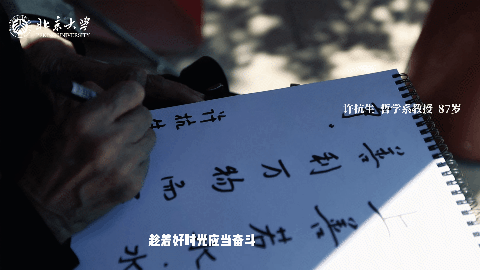 北京大学
PEKING UNIVERSITY
许抗生 哲学系教授 87岁
上善若水
水善利万物而
不争
许抗生
趁着好时光应当奋斗